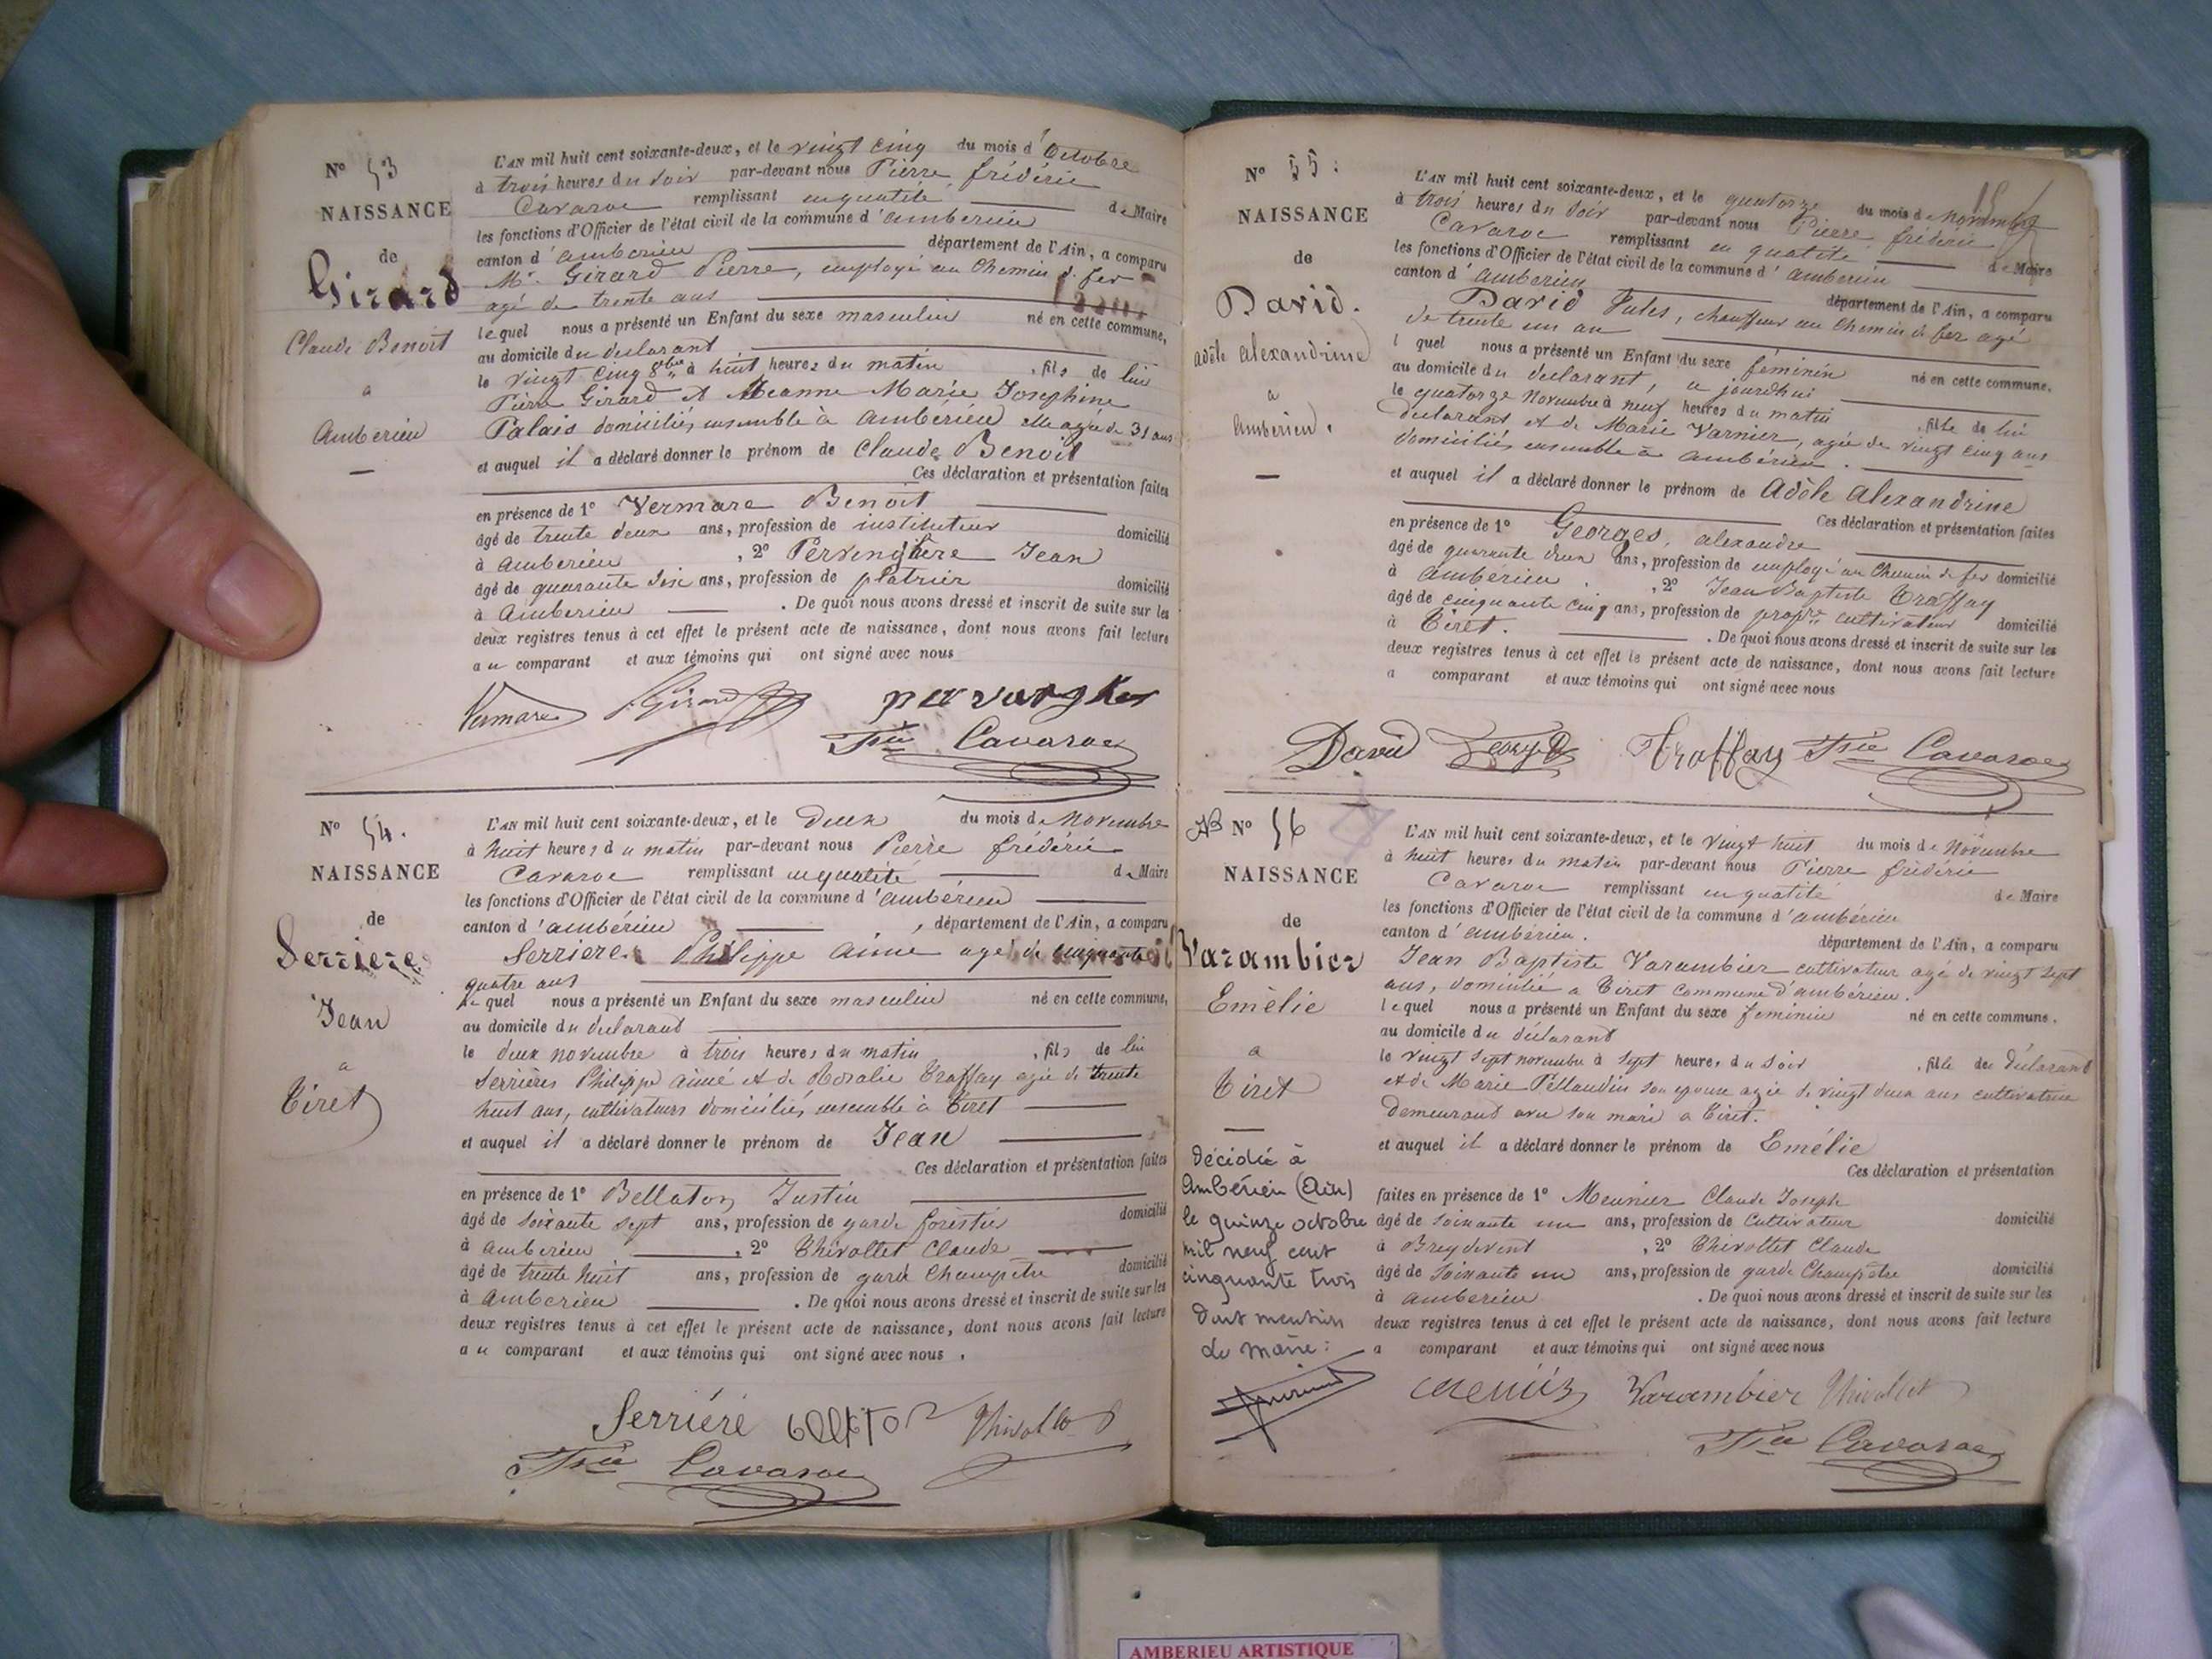 N° 53
NAISSANCE
de
Girard
Claude Benoit
a
Amberieu
L'AN mil huit cent soixante-deux, et le vingt cinq du mois d'Octobre
à trois heures du soir par-devant nous Pierre fréderic
Cavaroc remplissant en qualité de Maire
les fonctions d'Officier de l'état civil de la commune d'amberieu
canton d'amberieu département de l'Ain, a comparu
Mr. Girard Pierre, employé au Chemin d. fer
agé de trente ans
lequel nous a présenté un Enfant du sexe masculin né en cette commune,
au domicile du declarant
le vingt cinq 8bre à huit heures du matin , fils de lui
Pierre Girard et Jeanne Marie Josephine
Palais domiciliés ensemble à amberieu elle agée de 31 ans
et auquel il a déclaré donner le prénom de Claude Benoit
Ces déclaration et présentation faites
en présence de 1° Vermare Benoit
âgé de trente deux ans, profession de instituteur domicilié
à amberieu , 2° Pervenghere Jean
âgé de quarante six ans, profession de platrier domicilié
à Amberieu . De quoi nous avons dressé et inscrit de suite sur les
deux registres tenus à cet effet le présent acte de naissance, dont nous avons fait lecture
au comparant et aux témoins qui ont signé avec nous
Vermare Girard
Fric Cavaroc
N° 54.
NAISSANCE
de
Serriere
Jean
a
Tiret
L'AN mil huit cent soixante-deux, et le Deux du mois de Novembre
à huit heures du matin par-devant nous Pierre fréderic
Cavaroc remplissant en qualité de Maire
les fonctions d'Officier de l'état civil de la commune d'ambérieu
canton d'ambérieu , département de l'Ain, a comparu
Serriere Philippe aimé agé de cinquante
quatre ans
lequel nous a présenté un Enfant du sexe masculin né en cette commune,
au domicile du declarant
le deux novembre à trois heures du matin , fils de lui
Serrières Philippe aimé et de Rosalie Traffay agée de trente
huit ans, cultivateurs domiciliés ensemble à Tiret
et auquel il a déclaré donner le prénom de Jean
Ces déclaration et présentation faites
en présence de 1° Bellaton Justin
âgé de soixante sept ans, profession de garde forestier domicilié
à amberieu , 2° Thivollet Claude
âgé de trente huit ans, profession de garde Champêtre domicilié
à amberieu . De quoi nous avons dressé et inscrit de suite sur les
deux registres tenus à cet effet le présent acte de naissance, dont nous avons fait lecture
au comparant et aux témoins qui ont signé avec nous .
Serriére Thivollet
Fric Cavaroc
N° 55.
NAISSANCE
de
David.
adèle alexandrine
a
Ambérieu.
L'AN mil huit cent soixante-deux, et le quatorze du mois de Novembre
à trois heures du soir par-devant nous Pierre fréderic
Cavaroc remplissant en qualité de Maire
les fonctions d'Officier de l'état civil de la commune d'ambérieu
canton d'amberieu département de l'Ain, a comparu
David Jules, chauffeur au Chemin de fer agé
de trente un an
l quel nous a présenté un Enfant du sexe féminin né en cette commune,
au domicile du declarant, a jourdhui
le quatorze Novembre à neuf heures du matin , fille de lui
declarant et de Marie Varnier, agée de vingt cinq ans
domiciliés ensemble à ambérieu.
et auquel il a déclaré donner le prénom de Adèle alexandrine
Ces déclaration et présentation faites
en présence de 1° Georges, alexandre
âgé de quarante deux ans, profession de employé au Chemin de fer domicilié
à ambérieu , 2° Jean Baptiste Traffay
âgé de cinquante cinq ans, profession de propre cultivateur domicilié
à Tiret. . De quoi nous avons dressé et inscrit de suite sur les
deux registres tenus à cet effet le présent acte de naissance, dont nous avons fait lecture
a comparant et aux témoins qui ont signé avec nous
David Traffay Fric Cavaroc
N° 56
NAISSANCE
de
Varambier
Emèlie
a
Tiret
décédée à
Ambérieu (Ain)
le quinze octobre
mil neuf cent
cinquante trois
Dont mention
Le maire:
L'AN mil huit cent soixante-deux, et le vingt huit du mois de Novembre
à huit heures du matin par-devant nous Pierre fréderic
Cavaroc remplissant en qualité de Maire
les fonctions d'Officier de l'état civil de la commune d'ambérieu
canton d'ambérieu. département de l'Ain, a comparu
Jean Baptiste Varambier cultivateur agé de vingt sept
ans, domicilié a Tiret commune d'ambérieu.
lequel nous a présenté un Enfant du sexe feminin né en cette commune.
au domicile du déclarant
le vingt sept novembre à sept heures du soir , fille de déclarant
et de Marie Pellaudin son epouse agée de vingt deux ans cultivatrice
demeurant avec son mari a Tiret.
et auquel il a déclaré donner le prénom de Emélie
Ces déclaration et présentation
faites en présence de 1° Meunier Claude Joseph
âgé de soixante un ans, profession de Cultivateur domicilié
à Breydevent , 2° Thivollet Claude
âgé de soixante un ans, profession de garde Champêtre domicilié
à amberieu . De quoi nous avons dressé et inscrit de suite sur les
deux registres tenus à cet effet le présent acte de naissance, dont nous avons fait lecture
a comparant et aux témoins qui ont signé avec nous
Varambier Thivollet
Fric Cavaroc
AMBERIEU ARTISTIQUE